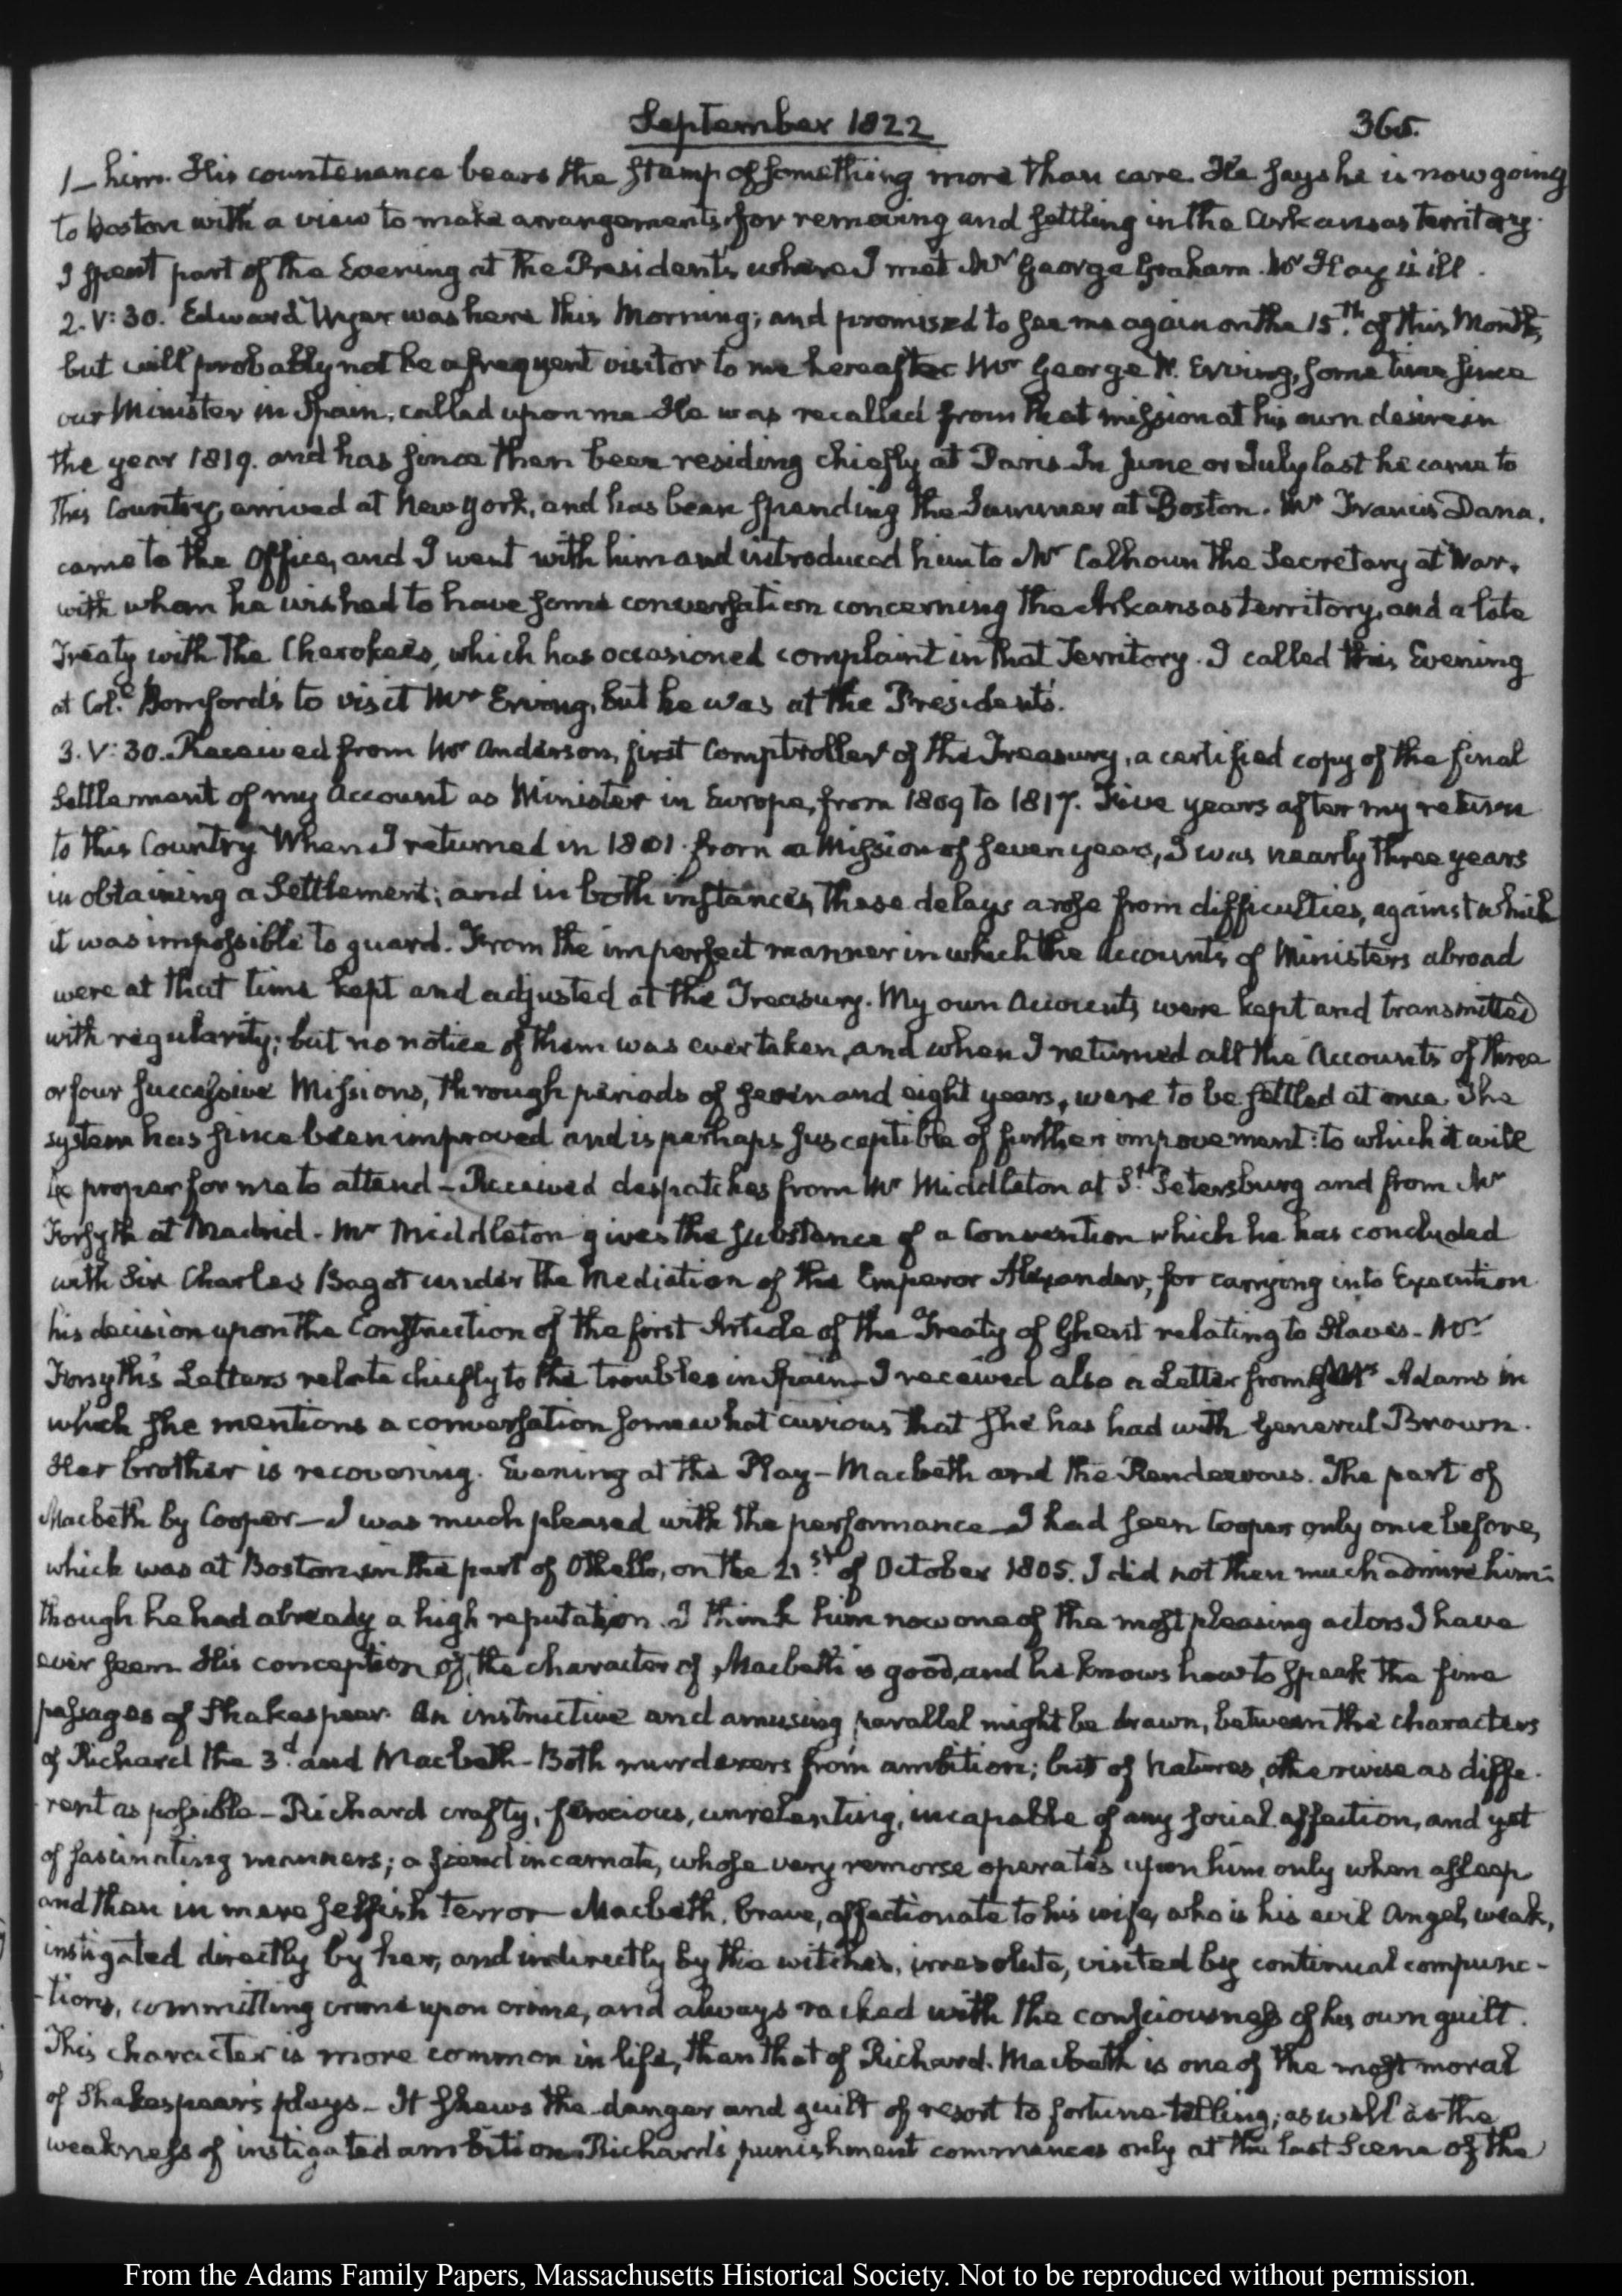 September 1822
365.
1– him. His countenance bears the stamp of something more than care. He says he is now going
to Boston with a view to make arrangements for removing and settling in the Arkansas territory.
I spent part of the Evening at the Presidents, where I met Mr George Graham. Mr Hay is ill.
2. V:30. Edward Wyer was here this Morning; and promised to see me again on the 15th of this Month,
but will probably not be a frequent visitor to me hereafter. Mr George W. Erving, some time since
our Minister in Spain, called upon me. He was recalled from that mission at his own desire in
the year 1819. and has since then been residing chiefly at Paris. In June or July last he came to
this Country, arrived at New York, and has been spending the Summer at Boston. Mr Francis Dana,
came to the Office, and I went with him and introduced him to Mr Calhoun the Secretary at War,
with whom he wished to have some conversation concerning the Arkansas territory, and a late
Treaty with the Cherokees, which has occasioned complaint in that Territory. I called this Evening
at Col. Bomford's to visit Mr Erving, but he was at the President's.
3. V:30. Received from Mr Anderson, first Comptroller of the Treasury, a certified copy of the final
Settlement of my Account as Minister in Europe, from 1809 to 1817. Five years after my return
to this Country. When I returned in 1801. from a Mission of seven years, I was nearly three years
in obtaining a Settlement; and in both instances, these delays arose from difficulties, against which
it was impossible to guard. From the imperfect manner in which the Accounts of Ministers abroad
were at that time kept and adjusted at the Treasury. My own Accounts were kept and transmitted
with regularity; but no notice of them was ever taken, and when I returned all the Accounts of three
or four successive Missions, through periods of seven and eight years, were to be settled at once. The
system has since been improved and is perhaps susceptible of further improvement: to which it will
be proper for me to attend – Received despatches from Mr Middleton at St Petersburg and from Mr
Forsyth at Madrid. Mr Middleton gives the substance of a Convention which he has concluded
with Sir Charles Bagot under the Mediation of the Emperor Alexander, for carrying into Execution
his decision upon the Construction of the first Article of the Treaty of Ghent relating to Slaves – Mr
Forsyth's Letters relate chiefly to the troubles in Spain – I received also a Letter from Mrs Adams in
which she mentions a conversation somewhat curious that she has had with General Brown.
Her brother is recovering. Evening at the Play – Macbeth and the Rendezvous. The part of
Macbeth by Cooper – I was much pleased with the performance – I had seen Cooper only once before,
which was at Boston, in the part of Othello, on the 21st of October 1805. I did not then much admire him:
though he had already a high reputation. I think him now one of the most pleasing actors I have
ever seen. His conception of the character of Macbeth is good, and he knows how to speak the fine
passages of Shakespear. An instructive and amusing parallel might be drawn, between the characters
of Richard the 3d and Macbeth – Both murderers from ambition; but of Natures, otherwise as diffe-
rent as possible – Richard crafty, ferocious, unrelenting, incapable of any social affection, and yet
of fascinating manners; a fiend incarnate, whose very remorse operates upon him only when asleep
and then in mere selfish terror – Macbeth, brave, affectionate to his wife, who is his evil Angel, weak,
instigated directly by her, and indirectly by the witches, irresolute, visited by continual compunc-
-tions, committing crime upon crime, and always racked with the consciousness of his own guilt.
This character is more common in life, than that of Richard. Macbeth is one of the most moral
of Shakespear's plays – It shews the danger and guilt of resort to fortune-telling, as well as the
weakness of instigated ambition. Richard's punishment commences only at the last Scene of the
From the Adams Family Papers, Massachusetts Historical Society. Not to be reproduced without permission.